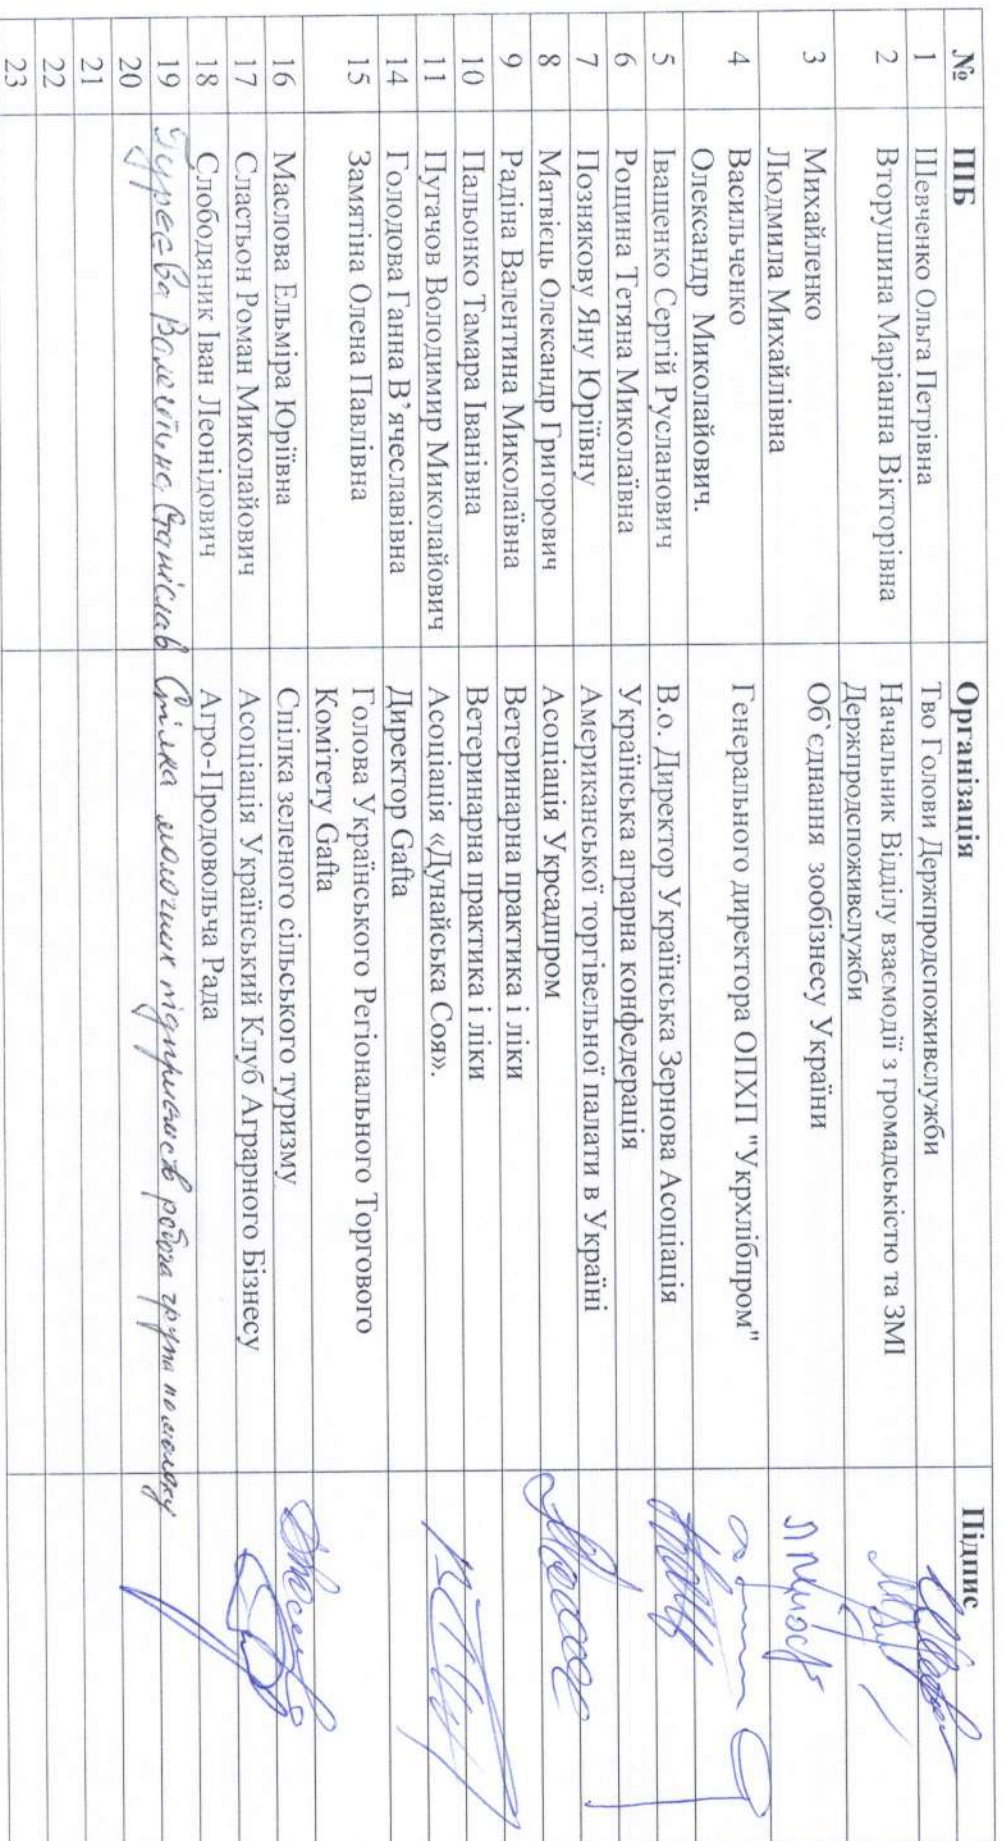 № ПІБ Організація Підпис
1 Шевченко Ольга Петрівна Тво Голови Держпродспоживслужби
2 Вторушина Маріанна Вікторівна Начальник Відділу взаємодії з громадськістю та ЗМІ
Держпродспоживслужби
3 Михайленко Об`єднання зообізнесу України
Людмила Михайлівна
4 Васильченко Генерального директора ОПХП "Укрхлібпром"
Олександр Миколайович.
5 Іващенко Сергій Русланович В.о. Директор Українська Зернова Асоціація
6 Рощина Тетяна Миколаївна Українська аграрна конфедерація
7 Познякову Яну Юріївну Американської торгівельної палати в Україні
8 Матвієць Олександр Григорович Асоціація Укрсадпром
9 Радіна Валентина Миколаївна Ветеринарна практика і ліки
10 Пальонко Тамара Іванівна Ветеринарна практика і ліки
11 Пугачов Володимир Миколайович Асоціація «Дунайська Соя».
14 Голодова Ганна В’ячеславівна Директор Gafta
15 Замятіна Олена Павлівна Голова Українського Регіонального Торгового
Комітету Gafta
16 Маслова Ельміра Юріївна Спілка зеленого сільського туризму
17 Сластьон Роман Миколайович Асоціація Український Клуб Аграрного Бізнесу
18 Слободяник Іван Леонідович Агро-Продовольча Рада
19 Станіслав Спілка молочних підприємств група
20
21
22
23